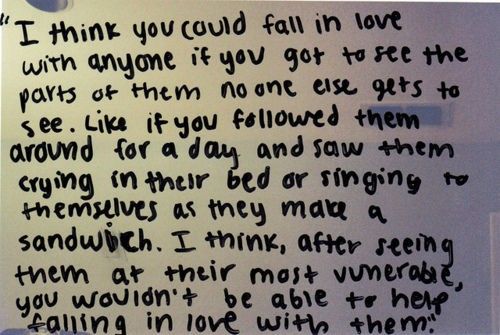 "I think you could fall in love
with anyone if you got to see the
parts of them no one else gets to
see. Like if you followed them
around for a day and saw them
crying in their bed or singing to
themselves as they make a
sandwich. I think, after seeing
them at their most vunerable,
you wouldn't be able to help
falling in love with them"